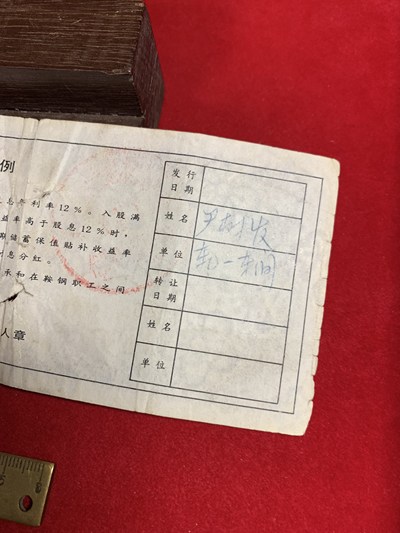 例
息年利率12%。入股满
益率高于股息12%时,
期储蓄保值贴补收益率
息分红。
承和在鞍钢职工之间
人章
发行
日期
姓名
发
单位
一车间
转让
日期
姓名
单位